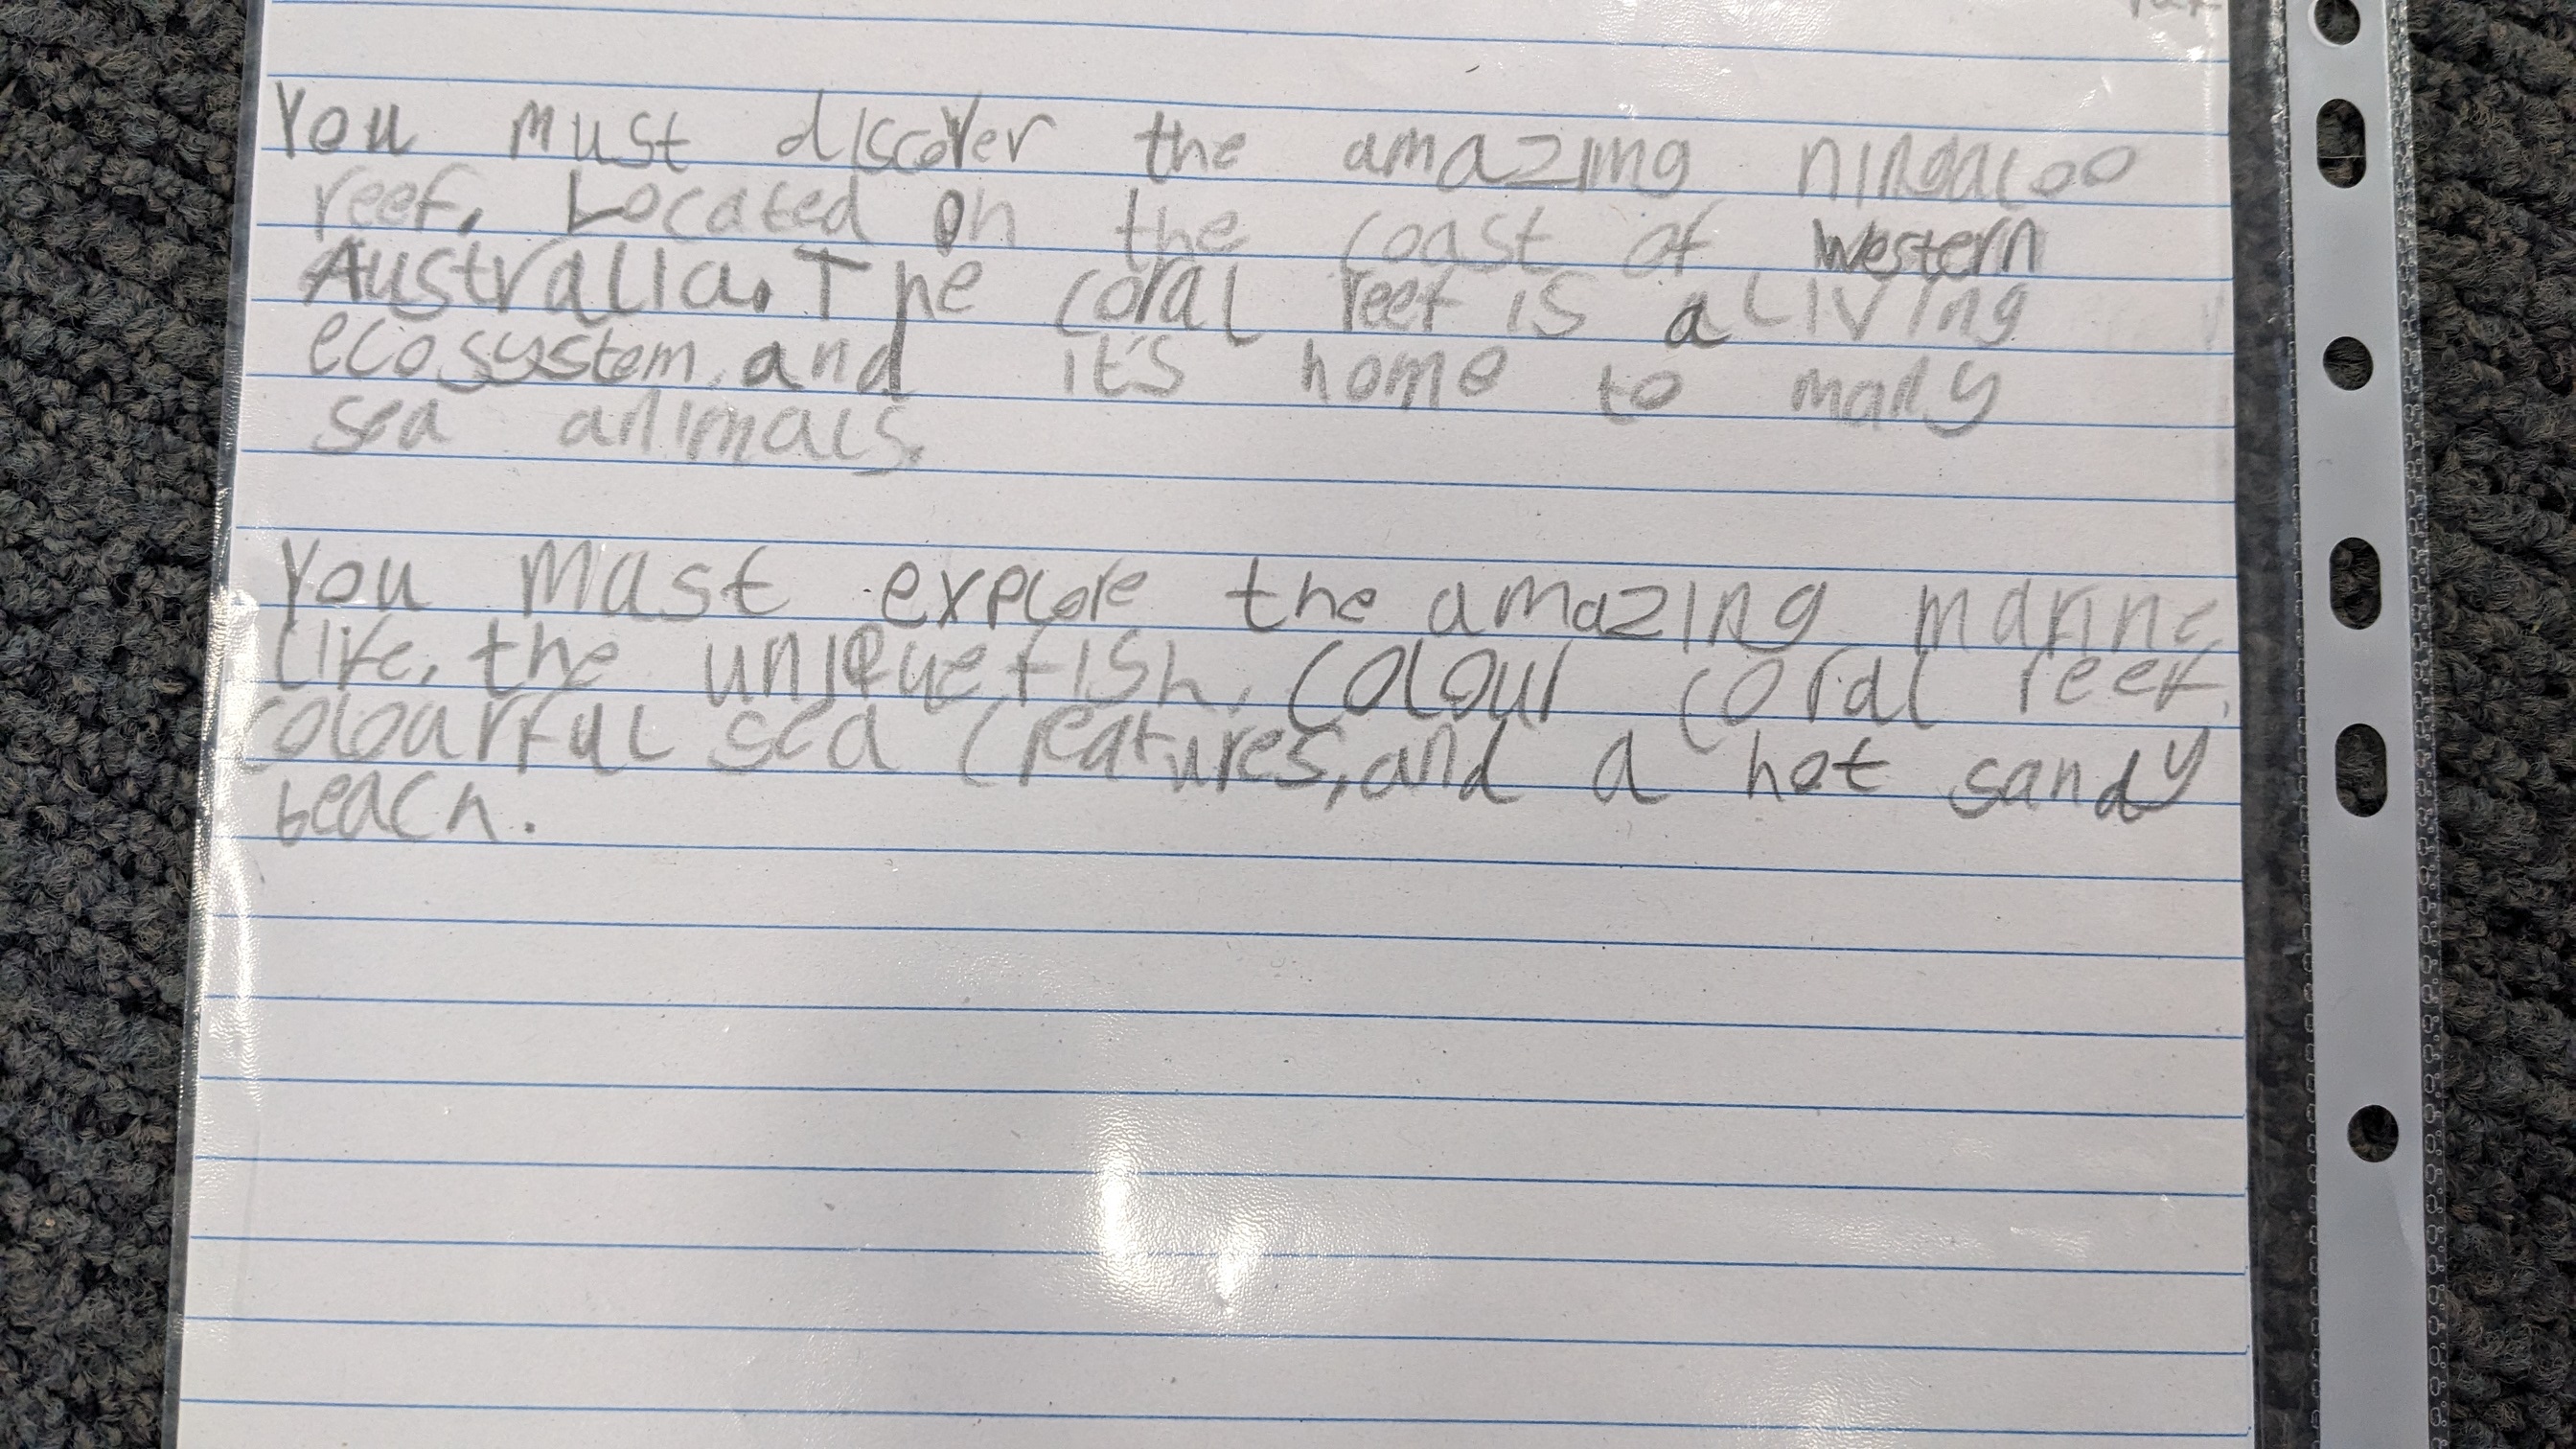 You must discover the amazing ningaloo
reef. Located on the coast of Western
Australia. The coral reef is a living
ecosystem and it's home to many
sea animals.
You mast explore the amazing marine
life, the unique fish, colour coral reef,
colourful sea creatures, and a hot sandy
beach.